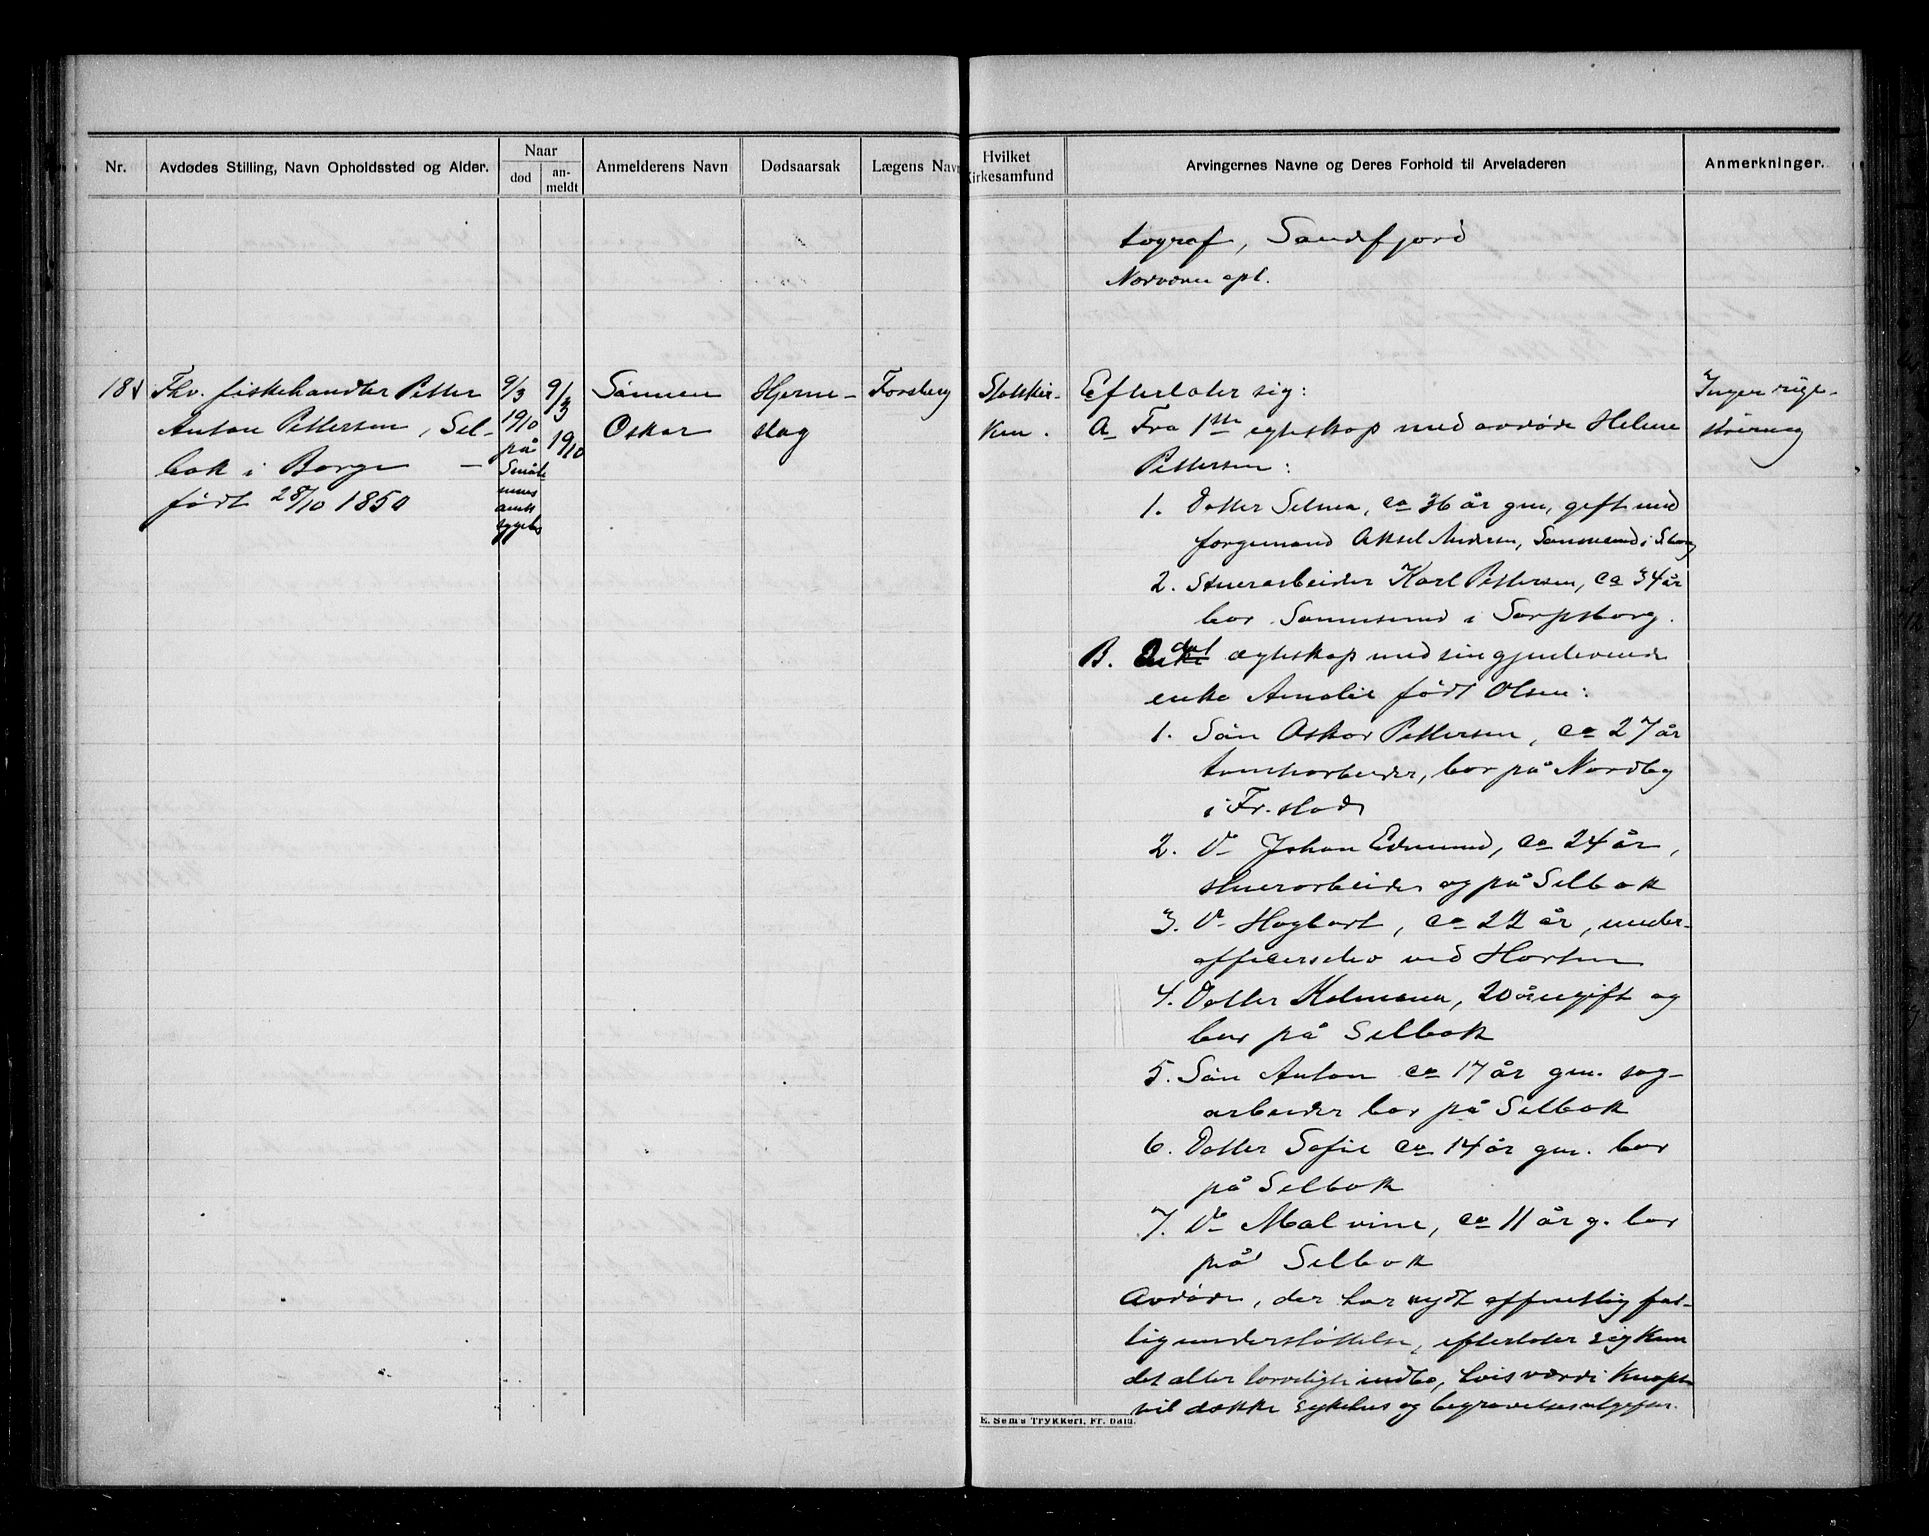 Nr.
Avdødes Stilling, Navn Opholdssted og Alder.
Naar
død
an-
meldt
Anmelderens Navn
Dødsaarsak
Lægens Navn
Hvilket
Kirkesamfund
Arvingernes Navne og Deres Forhold til Arveladeren
Anmerkninger.
tograf, Sandefjord
Nærværen opl.
18
Fhv. fiskehandler Petter
Anton Pettersen, Sel-
bak i Borge —
født 28/10 1850
9/3
1910
på
amts
sygehus
9/3
1910
Sønnen
Oskar
Hjerne-
slag
Forsberg
Statskir-
ken.
Efterlater sig:
A Fra 1ste egteskap med avdøde Helene
Pettersen:
1. Datter Selma, ca 36 år gm, gift med
formand Aksel Andersen, Sannesund i S.borg
2. Stuerarbeider Karl Pettersen, ca 34 år
bor Sannesund i Sarpsborg.
B. 2det ægteskap med sin gjenlevende
enke Amalie født Olsen:
1. Søn Oskar Pettersen, ca 27 år
tomtarbeider, bor på Nordby
i Fr.stad
2. Do Johan Edmund, ca 24 år,
stuerarbeider og på Selbak
3. Do Hagbart, ca 22 år, under-
officerselev ved Horten
4. Datter 20 år ugift og
bor på Selbak
5. Søn Anton ca 17 år gm. sag-
arbeider bor på Selbak
6. Datter Sofie ca 14 år gm. bor
på Selbak
7. Do Malvine, ca 11 år g. bor
på Selbak
Avdøde, der har nydt offentlig fat-
tigunderstøttelse, efterlater sig kun
det aller tarveligste indbo, hvis værdi knapt
vil dække sykehus og begravelsesutgifter.
Ingen regi-
strering
E. Sems Trykkeri, Fr.hald.